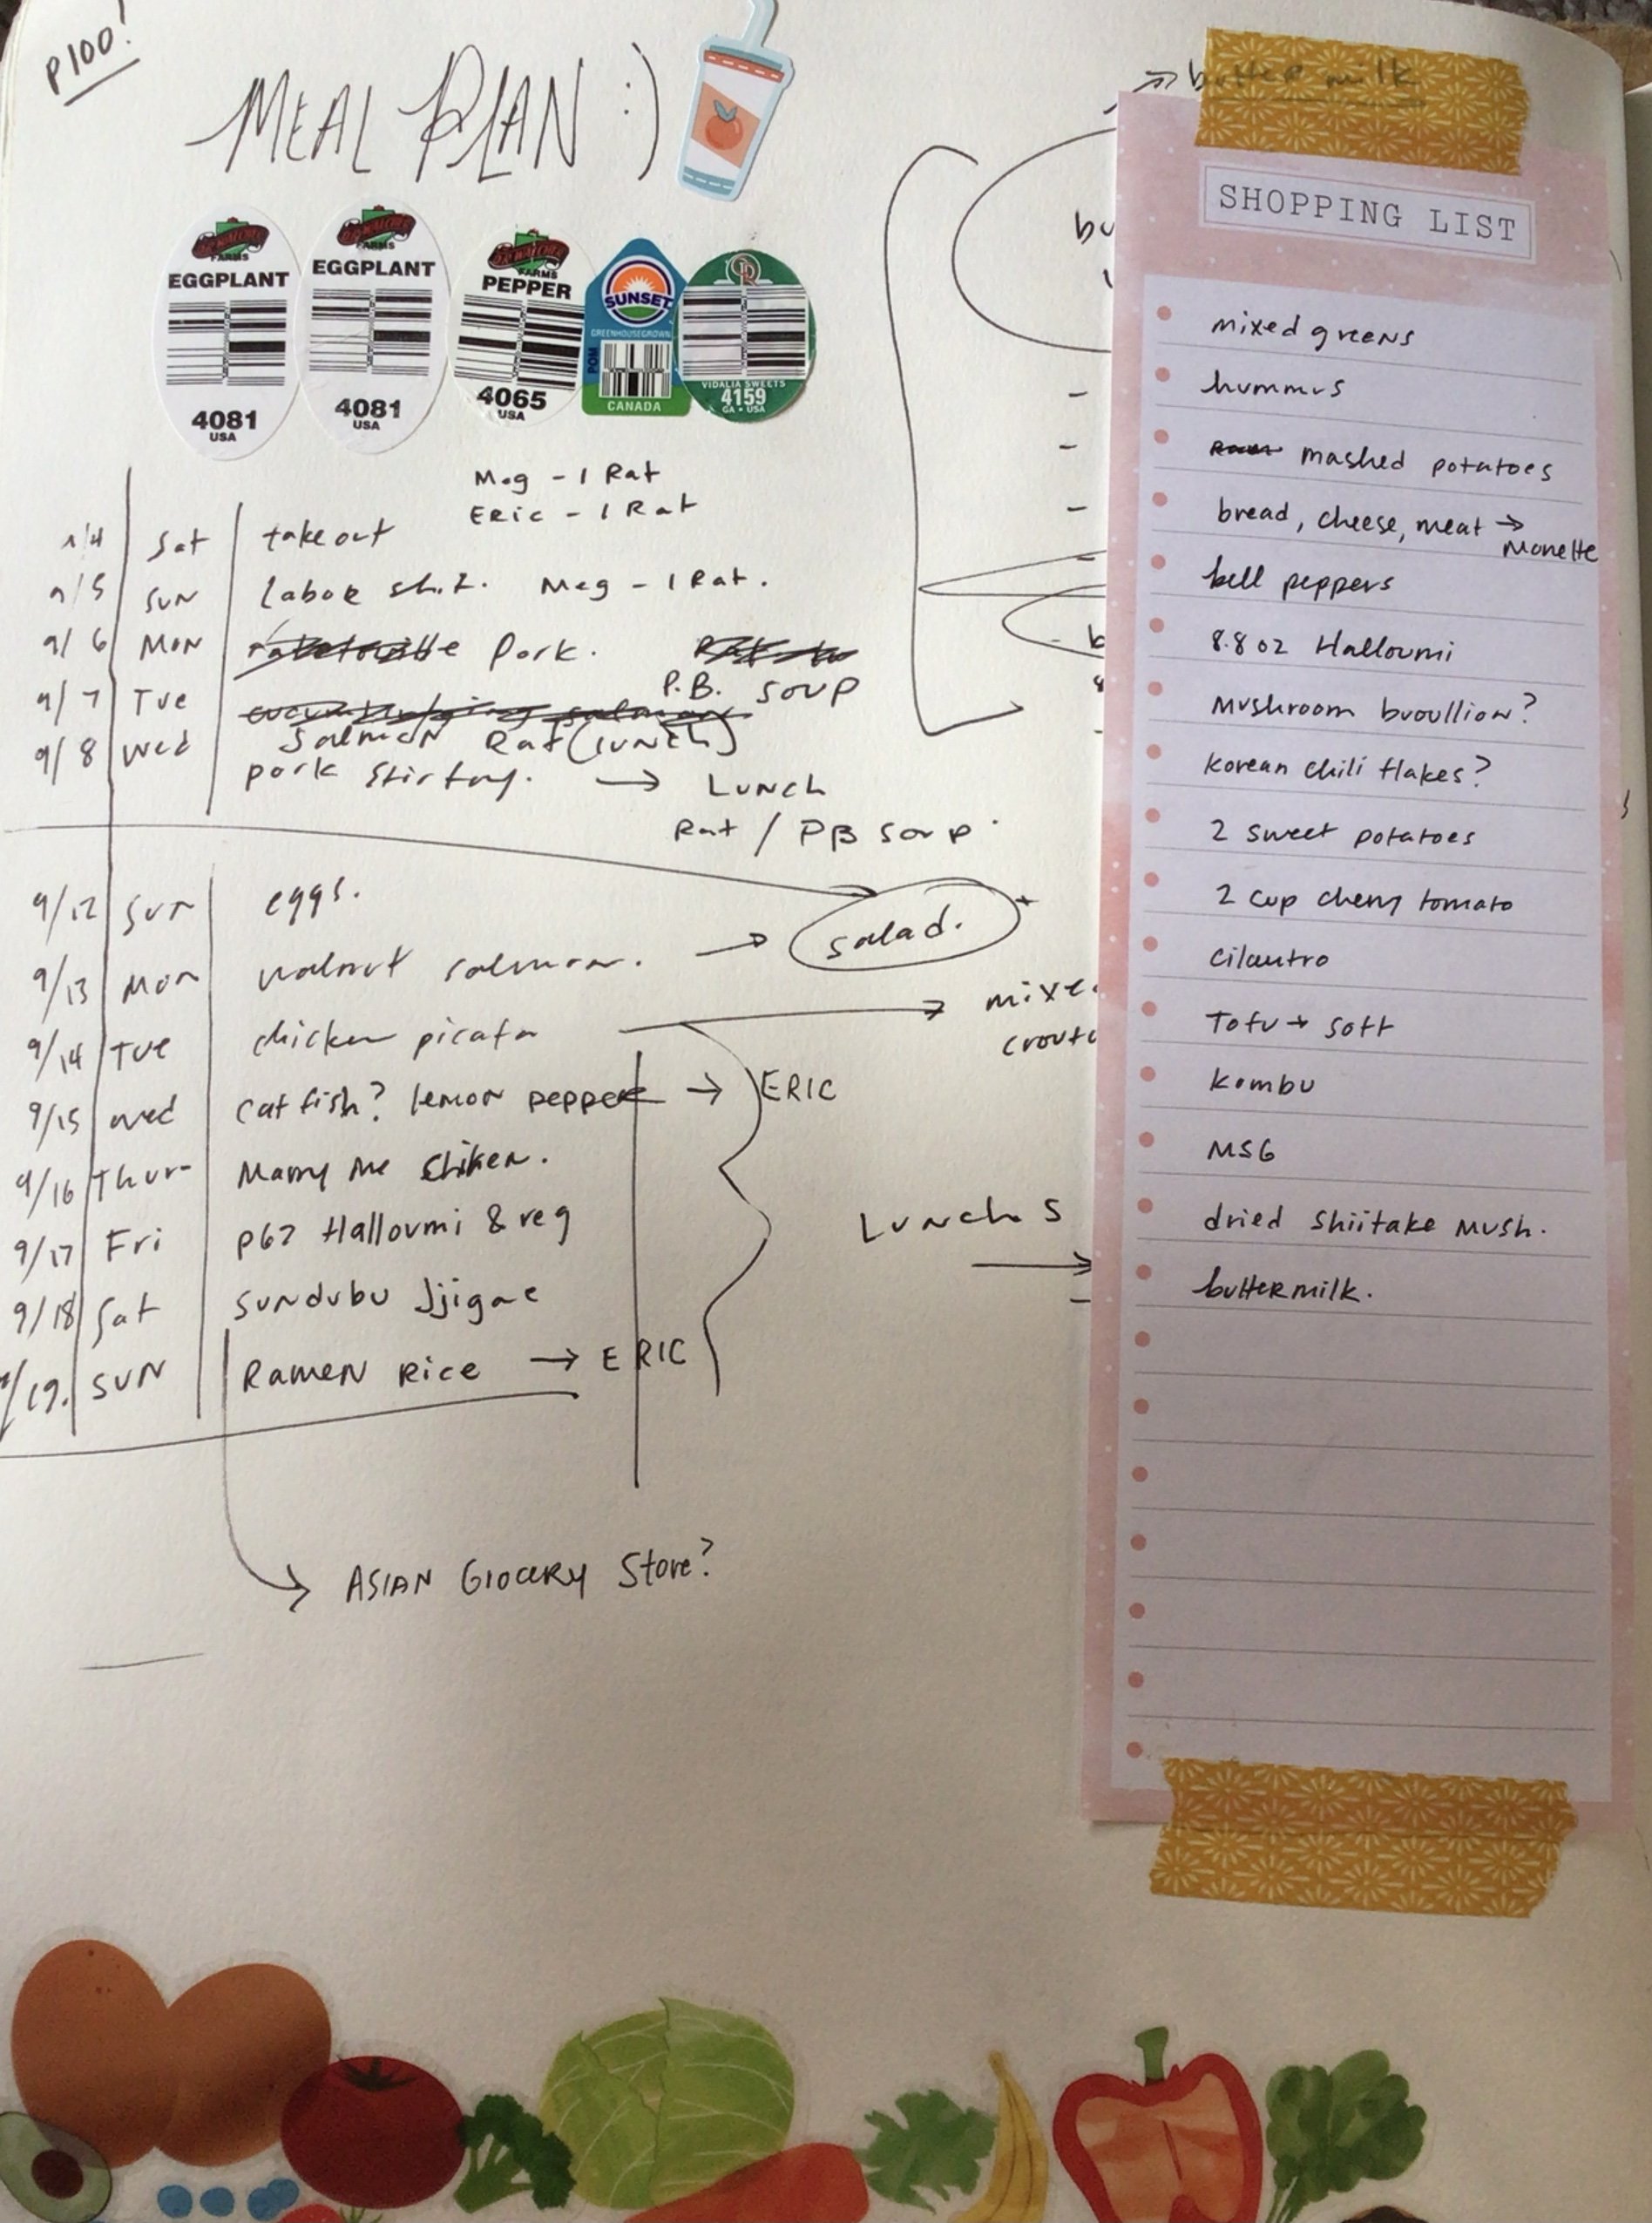 P100!
MEAL PLAN :)
FARMS
EGGPLANT
4081
USA
FARMS
EGGPLANT
4081
USA
FARMS
PEPPER
4065
USA
SUNSET
GREENHOUSE GROWN
POM
CANADA
VIDALIA SWEETS
4159
GA • USA
Meg - 1 Rat
Eric - 1 Rat
9/4 Sat takeout
9/5 SUN Meg - 1 Rat.
9/6 MON Pork.
P.B. SOUP
9/7 Tue
salmon Rat (lunch)
9/8 Wed pork stirfry. → LUNCH
Rat / PB soup
9/12 SUN eggs.
9/13 MON walnut salmon. → salad.
9/14 TUE chicken picata →
9/15 wed catfish? lemon pepper → ERIC
9/16 Thur Marry Me Chiken.
9/17 Fri P67 Halloumi & veg
9/18 Sat SUNDUBU Jjigae
9/19. SUN RAMEN RICE → ERIC
LUNCHS
→ ASIAN GROCERY Store?
→ butter milk
SHOPPING LIST
mixed greens
hummus
mashed potatoes
bread, cheese, meat → Monette
bell peppers
8.8 oz Halloumi
MUSHROOM bouullion?
Korean chili flakes?
2 sweet potatoes
2 cup cherry tomato
cilantro
Tofu → soft
kombu
MSG
dried shiitake mush.
buttermilk.